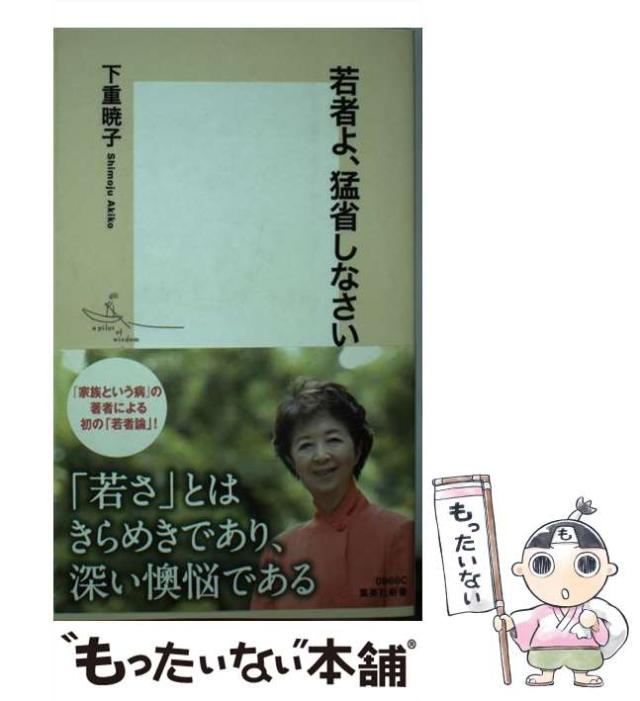 若者よ、猛省しなさい
下重暁子 Shimoju Akiko
a pilot
of
wisdom
「家族という病」の
著者による
初の「若者論」!
「若さ」とは
きらめきであり、
深い懊悩である
0866C
集英社新書
もったいない
も
"もったいない"本舗®